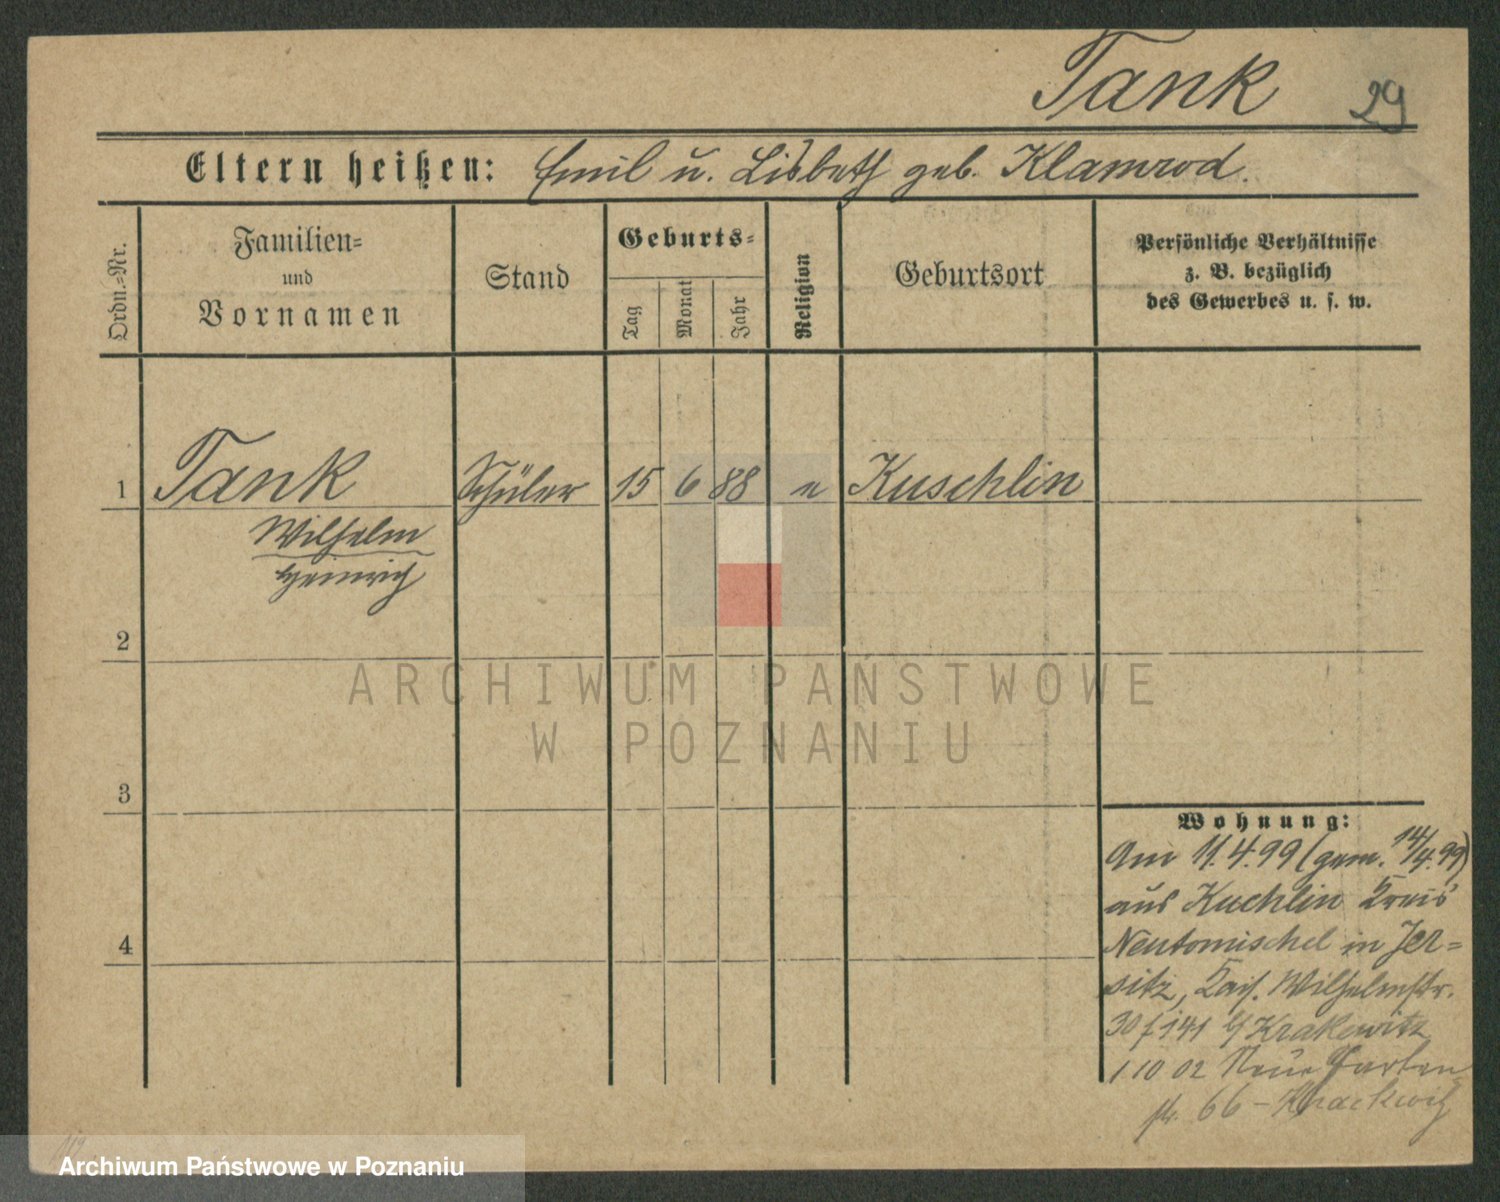 Tank 29
Eltern heißen: Emil u. Lisbeth geb. Klamrod.
Ordn.-Nr.
Familien-
und
Vornamen
Stand
Geburts-
Tag
Monat
Jahr
Religion
Geburtsort
Persönliche Verhältnisse
z. B. bezüglich
des Gewerbes u. s. w.
1 Tank Schüler 15 6 88 e Kuschlin
Wilhelm
Heinrich
2
3
4
Wohnung:
Am 11.4.99 (gem. 14/4.99)
aus Kuchlin Kreis
Neutomischel in Jer=
sitz, Kais. Wilhelmstr.
30 f 141 b/ Krakowitz
1 10 02 Neue Garten
str. 66 -
ARCHIWUM PAŃSTWOWE
W POZNANIU
Archiwum Państwowe w Poznaniu